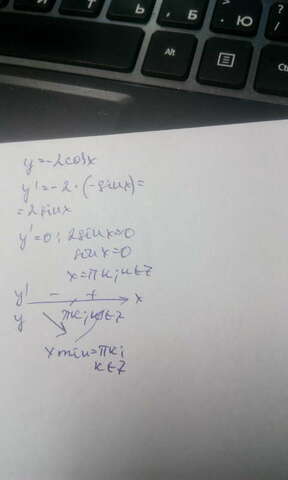 Alt
Ь
Б
Ю
?
y=-2cosx
y'=-2·(-sinx)=
=2sinx
y'=0; 2sinx=0
sinx=0
x=πk; k∈Z
y' - + x
y πk; k∈Z
xmin=πk;
k∈Z